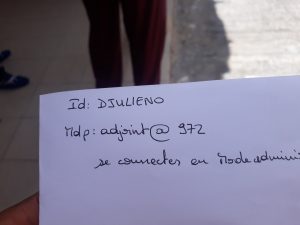 Id: DJULIENO
Mdp: adjoint@ 972
se connecter en Mode admini